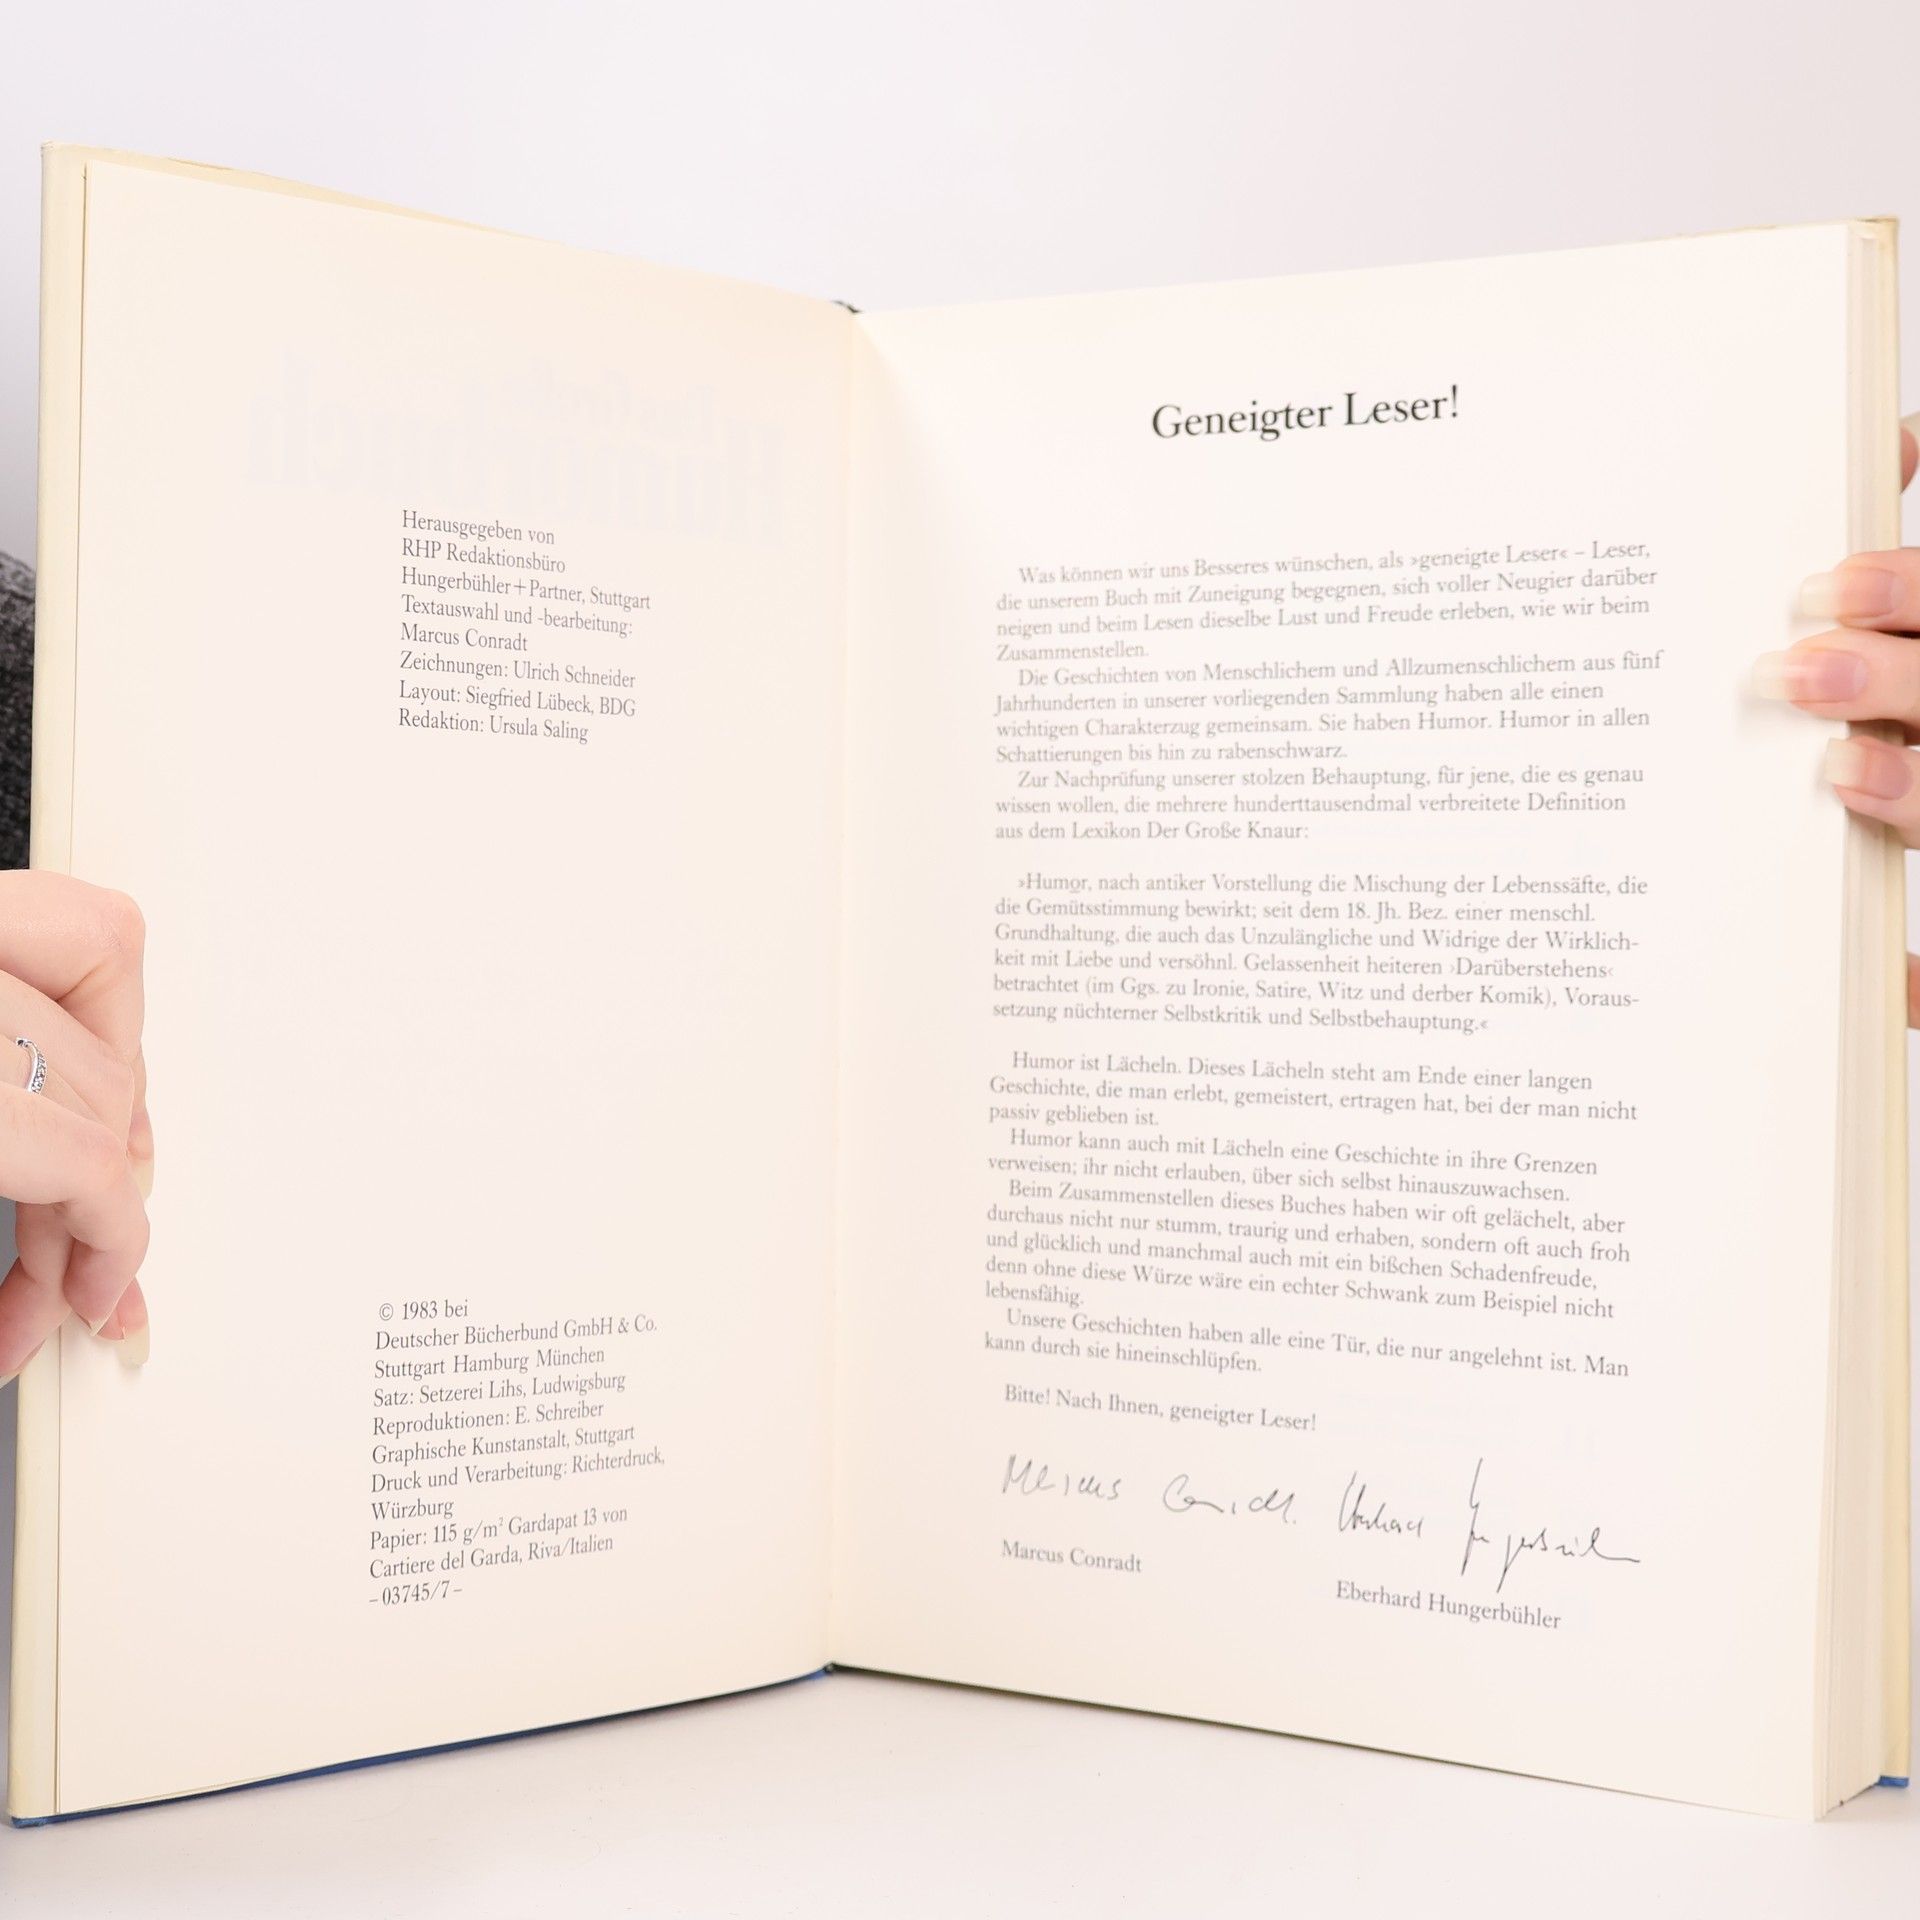 Herausgegeben von
RHP Redaktionsbüro
Hungerbühler+Partner, Stuttgart
Textauswahl und -bearbeitung:
Marcus Conradt
Zeichnungen: Ulrich Schneider
Layout: Siegfried Lübeck, BDG
Redaktion: Ursula Saling
© 1983 bei
Deutscher Bücherbund GmbH & Co.
Stuttgart Hamburg München
Satz: Setzerei Lihs, Ludwigsburg
Reproduktionen: E. Schreiber
Graphische Kunstanstalt, Stuttgart
Druck und Verarbeitung: Richterdruck,
Würzburg
Papier: 115 g/m² Gardapat 13 von
Cartiere del Garda, Riva/Italien
– 03745/7 –
Geneigter Leser!
Was können wir uns Besseres wünschen, als »geneigte Leser« – Leser,
die unserem Buch mit Zuneigung begegnen, sich voller Neugier darüber
neigen und beim Lesen dieselbe Lust und Freude erleben, wie wir beim
Zusammenstellen.
Die Geschichten von Menschlichem und Allzumenschlichem aus fünf
Jahrhunderten in unserer vorliegenden Sammlung haben alle einen
wichtigen Charakterzug gemeinsam. Sie haben Humor. Humor in allen
Schattierungen bis hin zu rabenschwarz.
Zur Nachprüfung unserer stolzen Behauptung, für jene, die es genau
wissen wollen, die mehrere hunderttausendmal verbreitete Definition
aus dem Lexikon Der Große Knaur:
»Humor, nach antiker Vorstellung die Mischung der Lebenssäfte, die
die Gemütsstimmung bewirkt; seit dem 18. Jh. Bez. einer menschl.
Grundhaltung, die auch das Unzulängliche und Widrige der Wirklich-
keit mit Liebe und versöhnl. Gelassenheit heiteren ›Darüberstehens‹
betrachtet (im Ggs. zu Ironie, Satire, Witz und derber Komik), Voraus-
setzung nüchterner Selbstkritik und Selbstbehauptung.«
Humor ist Lächeln. Dieses Lächeln steht am Ende einer langen
Geschichte, die man erlebt, gemeistert, ertragen hat, bei der man nicht
passiv geblieben ist.
Humor kann auch mit Lächeln eine Geschichte in ihre Grenzen
verweisen; ihr nicht erlauben, über sich selbst hinauszuwachsen.
Beim Zusammenstellen dieses Buches haben wir oft gelächelt, aber
durchaus nicht nur stumm, traurig und erhaben, sondern oft auch froh
und glücklich und manchmal auch mit ein bißchen Schadenfreude,
denn ohne diese Würze wäre ein echter Schwank zum Beispiel nicht
lebensfähig.
Unsere Geschichten haben alle eine Tür, die nur angelehnt ist. Man
kann durch sie hineinschlüpfen.
Bitte! Nach Ihnen, geneigter Leser!
Marcus Conradt Eberhard Hungerbühler
Marcus Conradt
Eberhard Hungerbühler